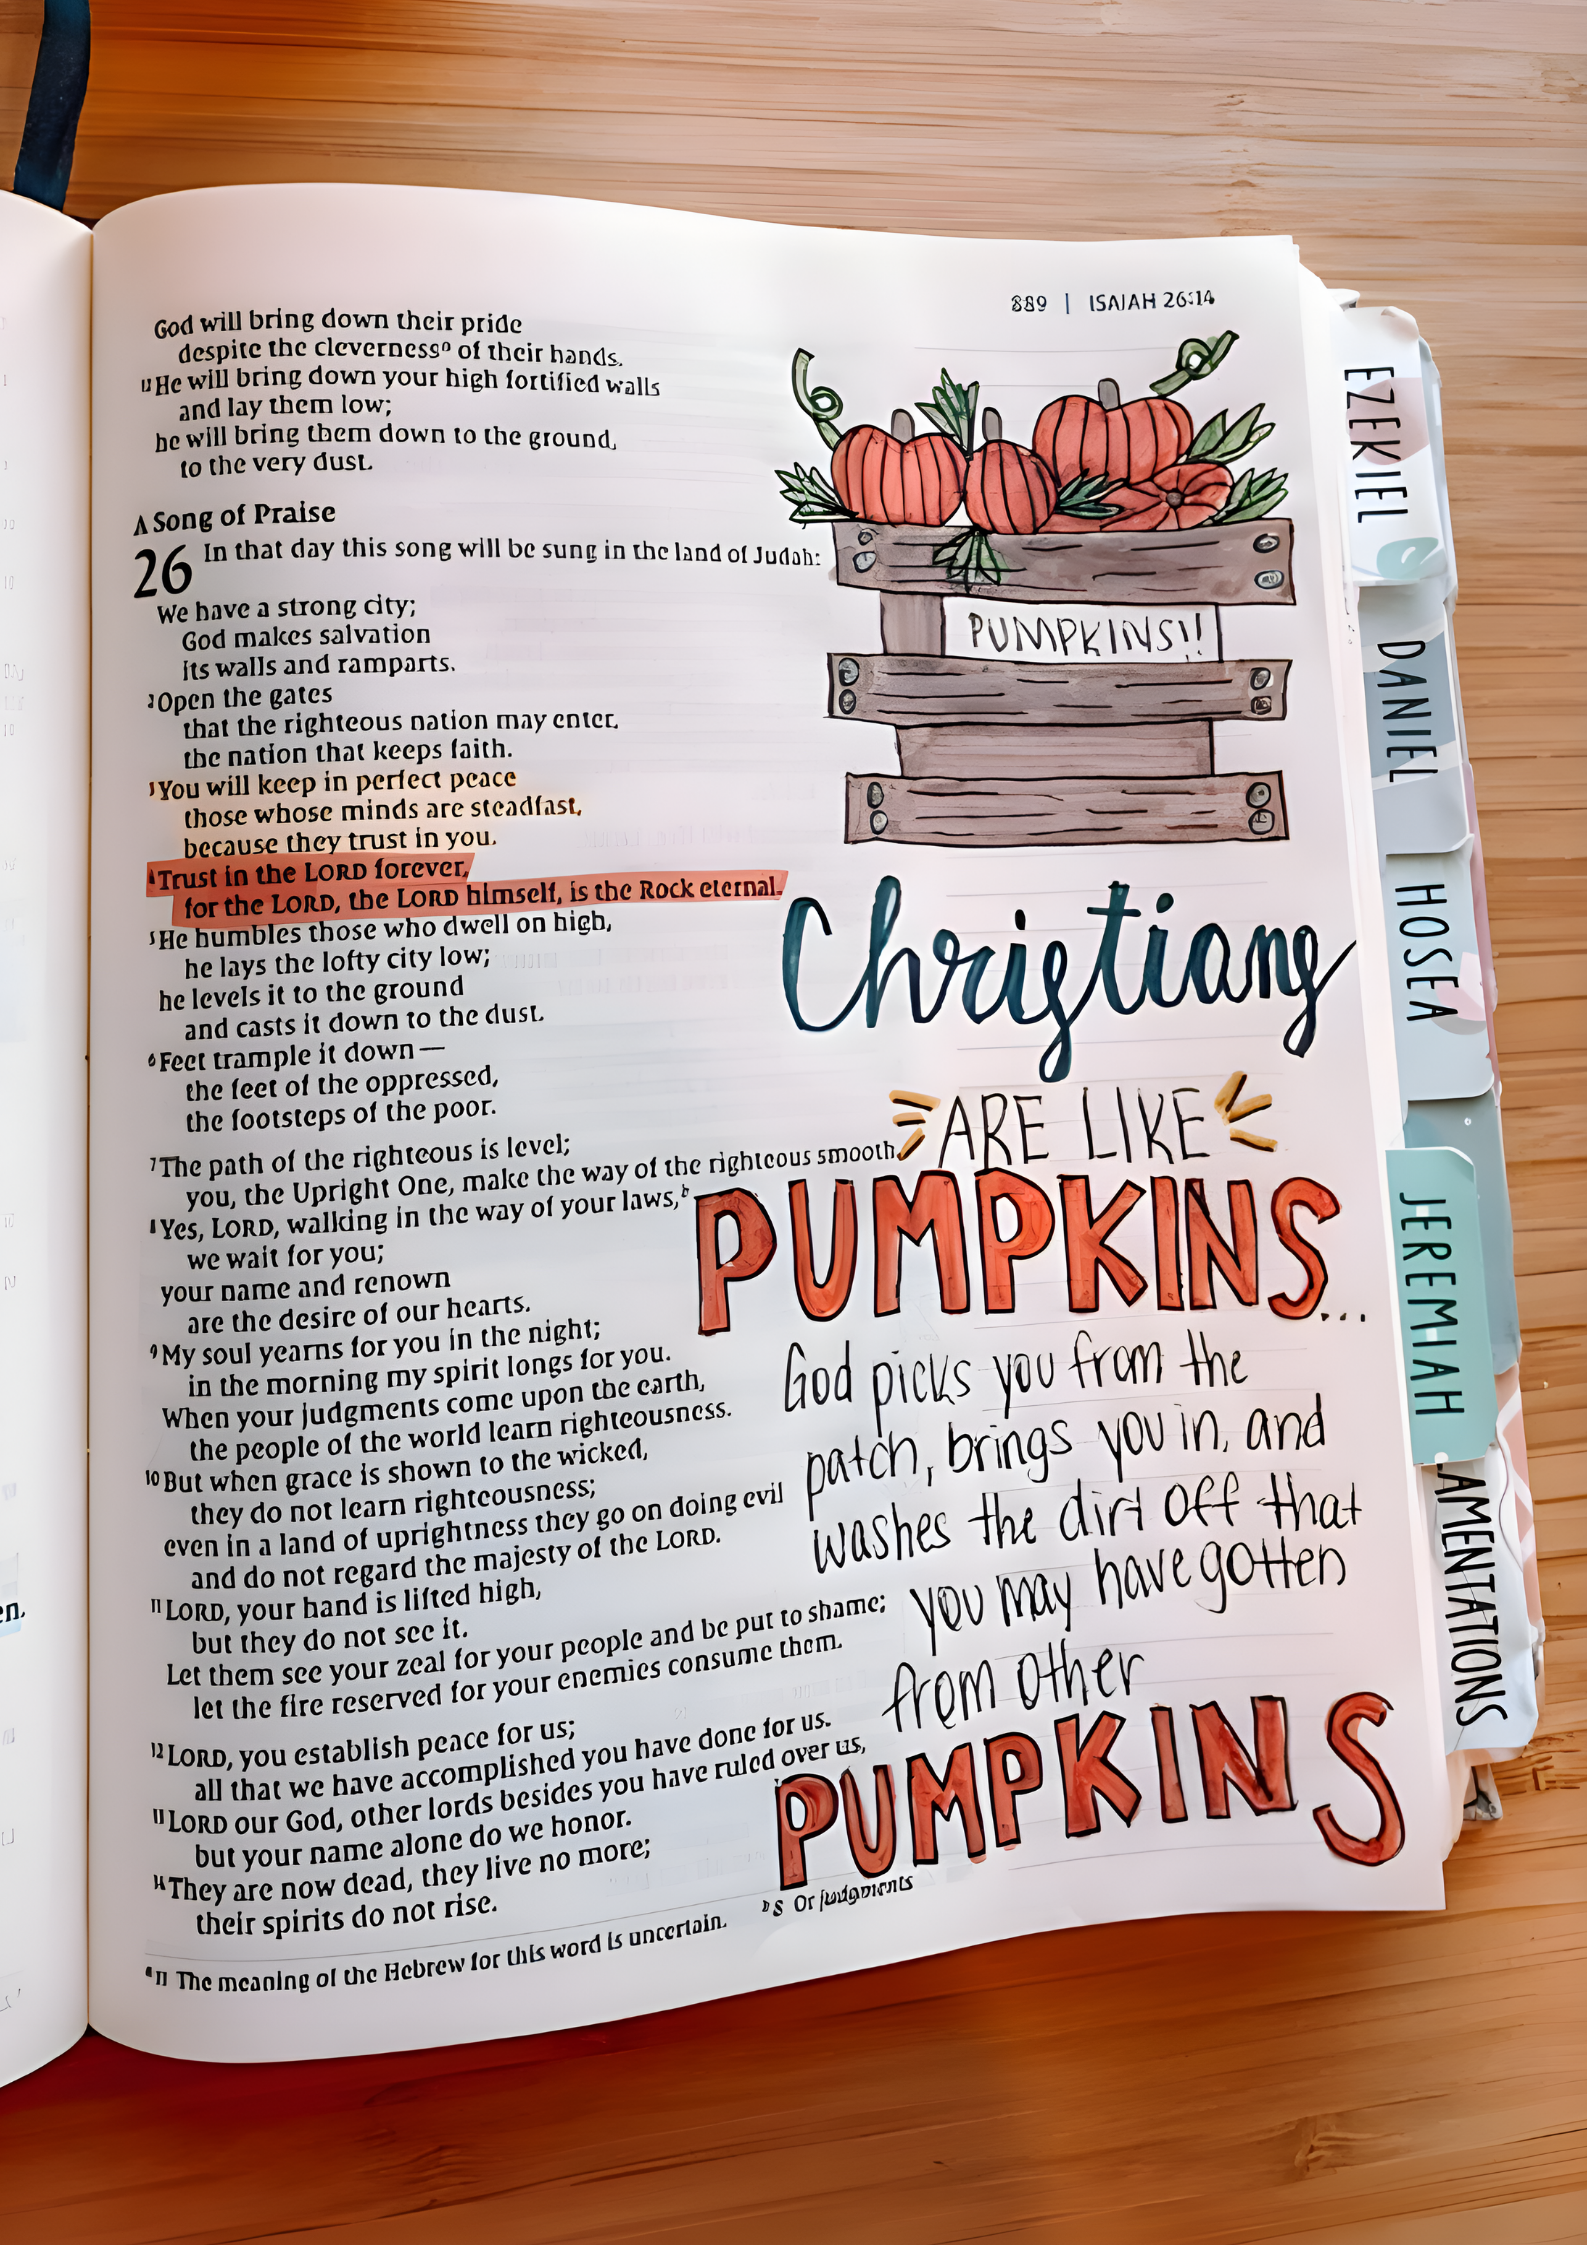 889 | ISAIAH 26:14
God will bring down their pride
despite the cleverness a of their hands.
12 He will bring down your high fortified walls
and lay them low;
he will bring them down to the ground,
to the very dust.
A Song of Praise
26 In that day this song will be sung in the land of Judah:
We have a strong city;
God makes salvation
its walls and ramparts.
2 Open the gates
that the righteous nation may enter,
the nation that keeps faith.
3 You will keep in perfect peace
those whose minds are steadfast,
because they trust in you.
4 Trust in the LORD forever,
for the LORD, the LORD himself, is the Rock eternal.
5 He humbles those who dwell on high,
he lays the lofty city low;
he levels it to the ground
and casts it down to the dust.
6 Feet trample it down—
the feet of the oppressed,
the footsteps of the poor.
7 The path of the righteous is level;
you, the Upright One, make the way of the righteous smooth.
8 Yes, LORD, walking in the way of your laws, b
we wait for you;
your name and renown
are the desire of our hearts.
9 My soul yearns for you in the night;
in the morning my spirit longs for you.
When your judgments come upon the earth,
the people of the world learn righteousness.
10 But when grace is shown to the wicked,
they do not learn righteousness;
even in a land of uprightness they go on doing evil
and do not regard the majesty of the LORD.
11 LORD, your hand is lifted high,
but they do not see it.
Let them see your zeal for your people and be put to shame;
let the fire reserved for your enemies consume them.
12 LORD, you establish peace for us;
all that we have accomplished you have done for us.
13 LORD our God, other lords besides you have ruled over us,
but your name alone do we honor.
14 They are now dead, they live no more;
their spirits do not rise.
a 11 The meaning of the Hebrew for this word is uncertain.
b 8 Or judgments
PUMPKINS!!
Christians
ARE LIKE
PUMPKINS...
God picks you from the
patch, brings you in, and
washes the dirt off that
you may have gotten
from other
PUMPKINS
EZEKIEL
DANIEL
HOSEA
JEREMIAH
LAMENTATIONS
en.